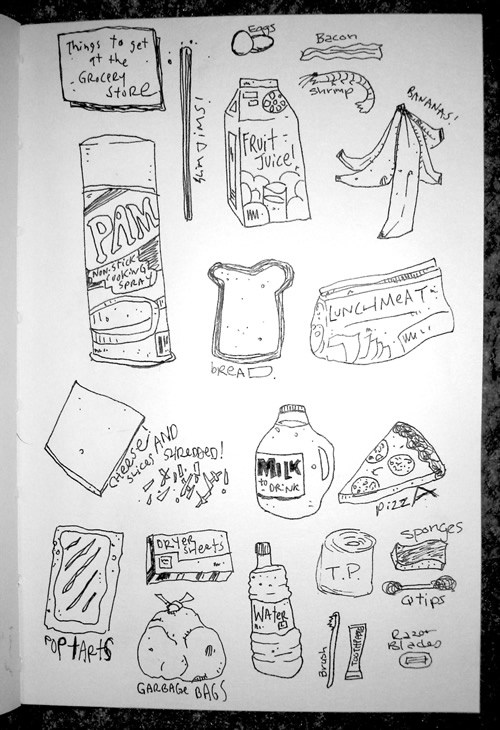 Things to get
At the
Grocery
Store
SLIM JIMS!
Eggs
Bacon
Shrimp
BANANAS!
FRUIT-
JUICE!
PAM
NON-STICK
COOKING
SPRAY
BREAD.
LUNCHMEAT
CHEESE!
SLICES AND
SHREDDED!
MILK
to
DRINK
PIZZA
POPTARTS
DRYER
Sheets
GARBAGE BAGS
WATER
T.P.
Sponges
QTips
Brush
Toothpaste
Razor
Blades